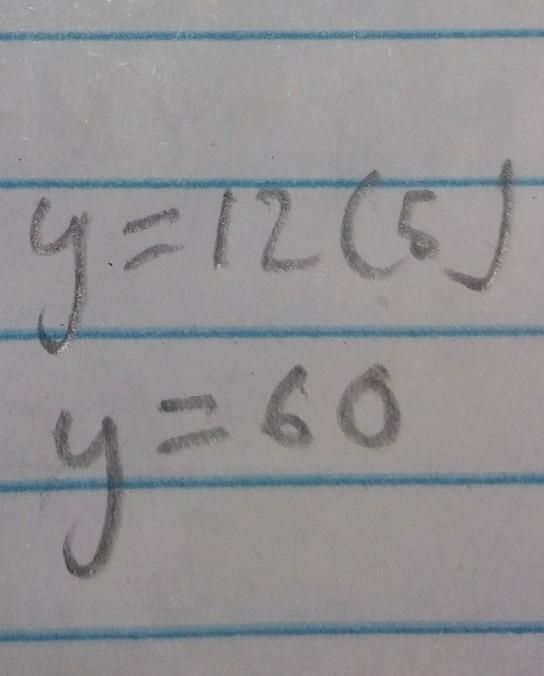 y = 12 (5)
y = 60